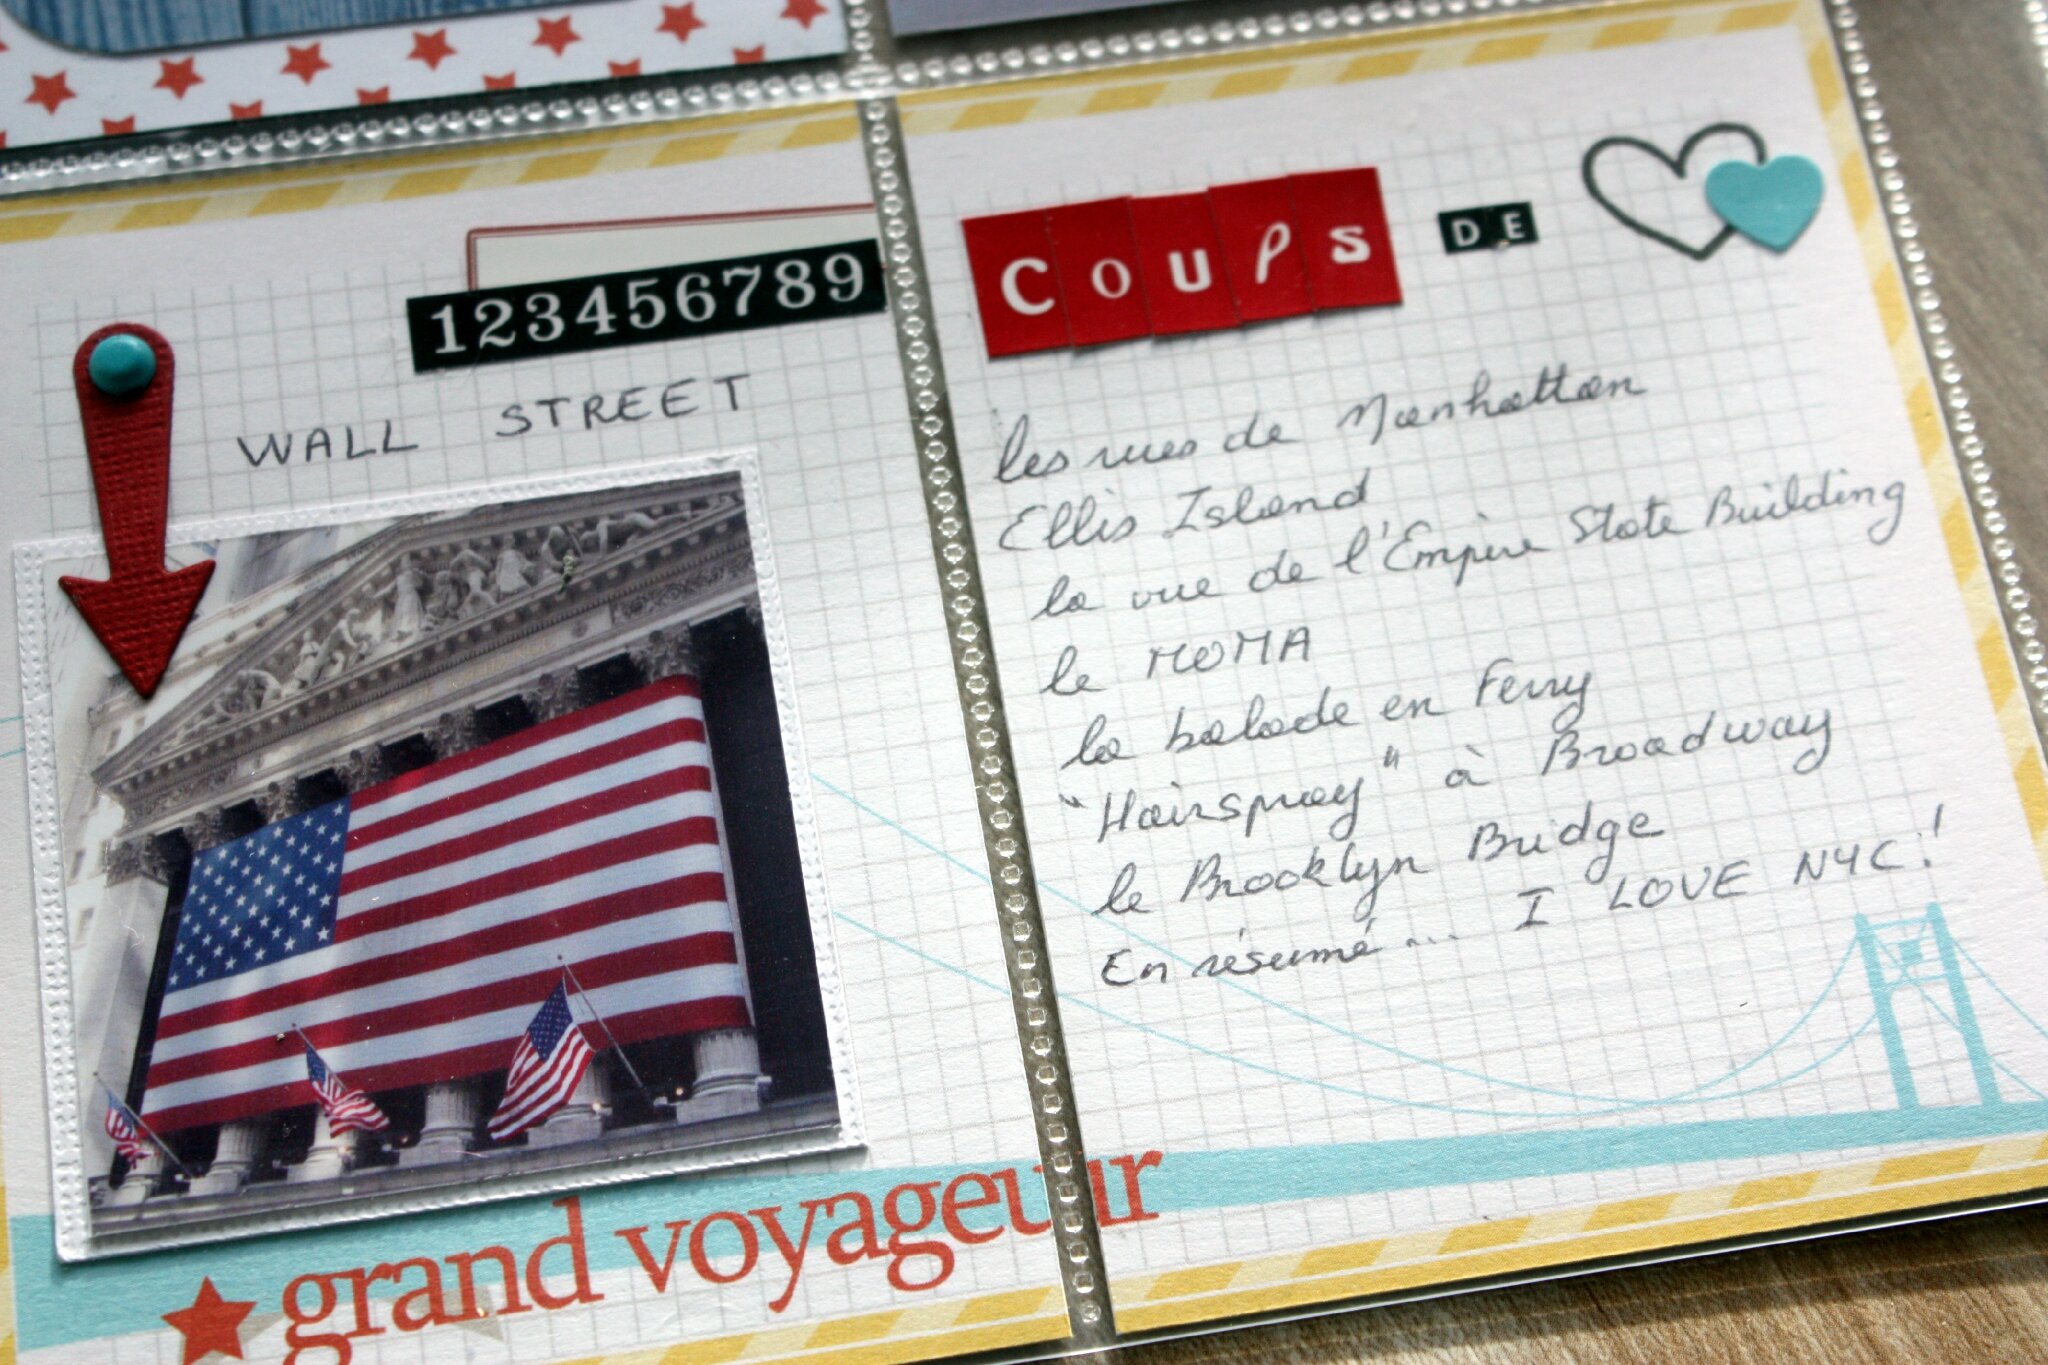 123456789
WALL STREET
grand voyageur
Coups DE
les rues de Manhattan
Ellis Island
la vue de l'Empire State Building
le MOMA
la balade en Ferry
"Hairspray" à Broadway
le Brooklyn Bridge
En résumé... I LOVE NYC!